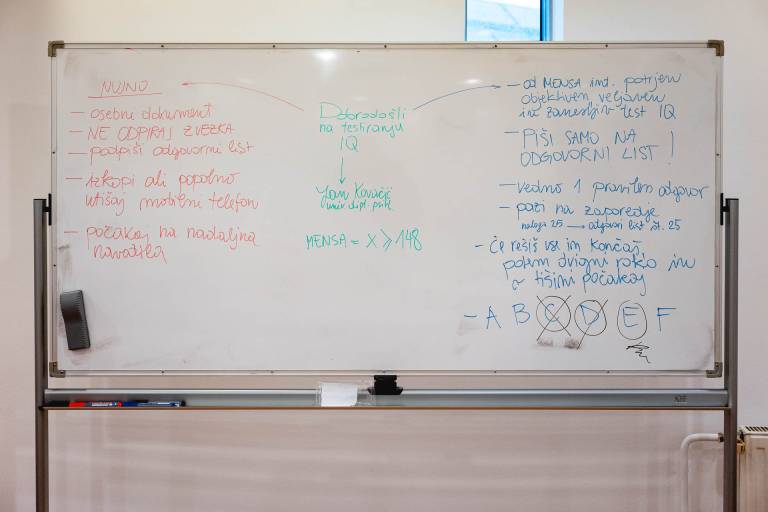 NUJNO
— osebni dokument
— NE ODPIRAJ ZVEZKA
— podpiši odgovorni list
— izklopi ali popolno
utišaj mobilni telefon
— počakaj na nadaljna
navodila
Dobrodošli
na testiranju
IQ
Jan Kovačič
univ. dipl. psih.
MENSA = X ≥ 148
— od MENSA int. potrjen
objektiven veljaven
in zanesljiv test IQ
— PIŠI SAMO NA
ODGOVORNI LIST !
— vedno 1 pravilen odgovor
— pazi na zaporedje
naloga 25 → odgovori list št. 25
— Če rešiš vse in končaš,
potem dvigni roko in
v tišini počakaj
— A B C D E F